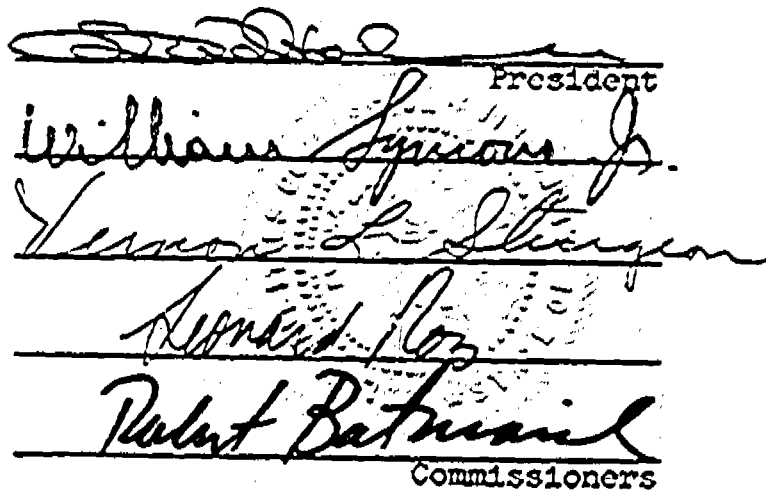 President
William Symons Jr.
Vernon L Sturgeon
Leonard Ross
Robert Batinovich
Commissioners